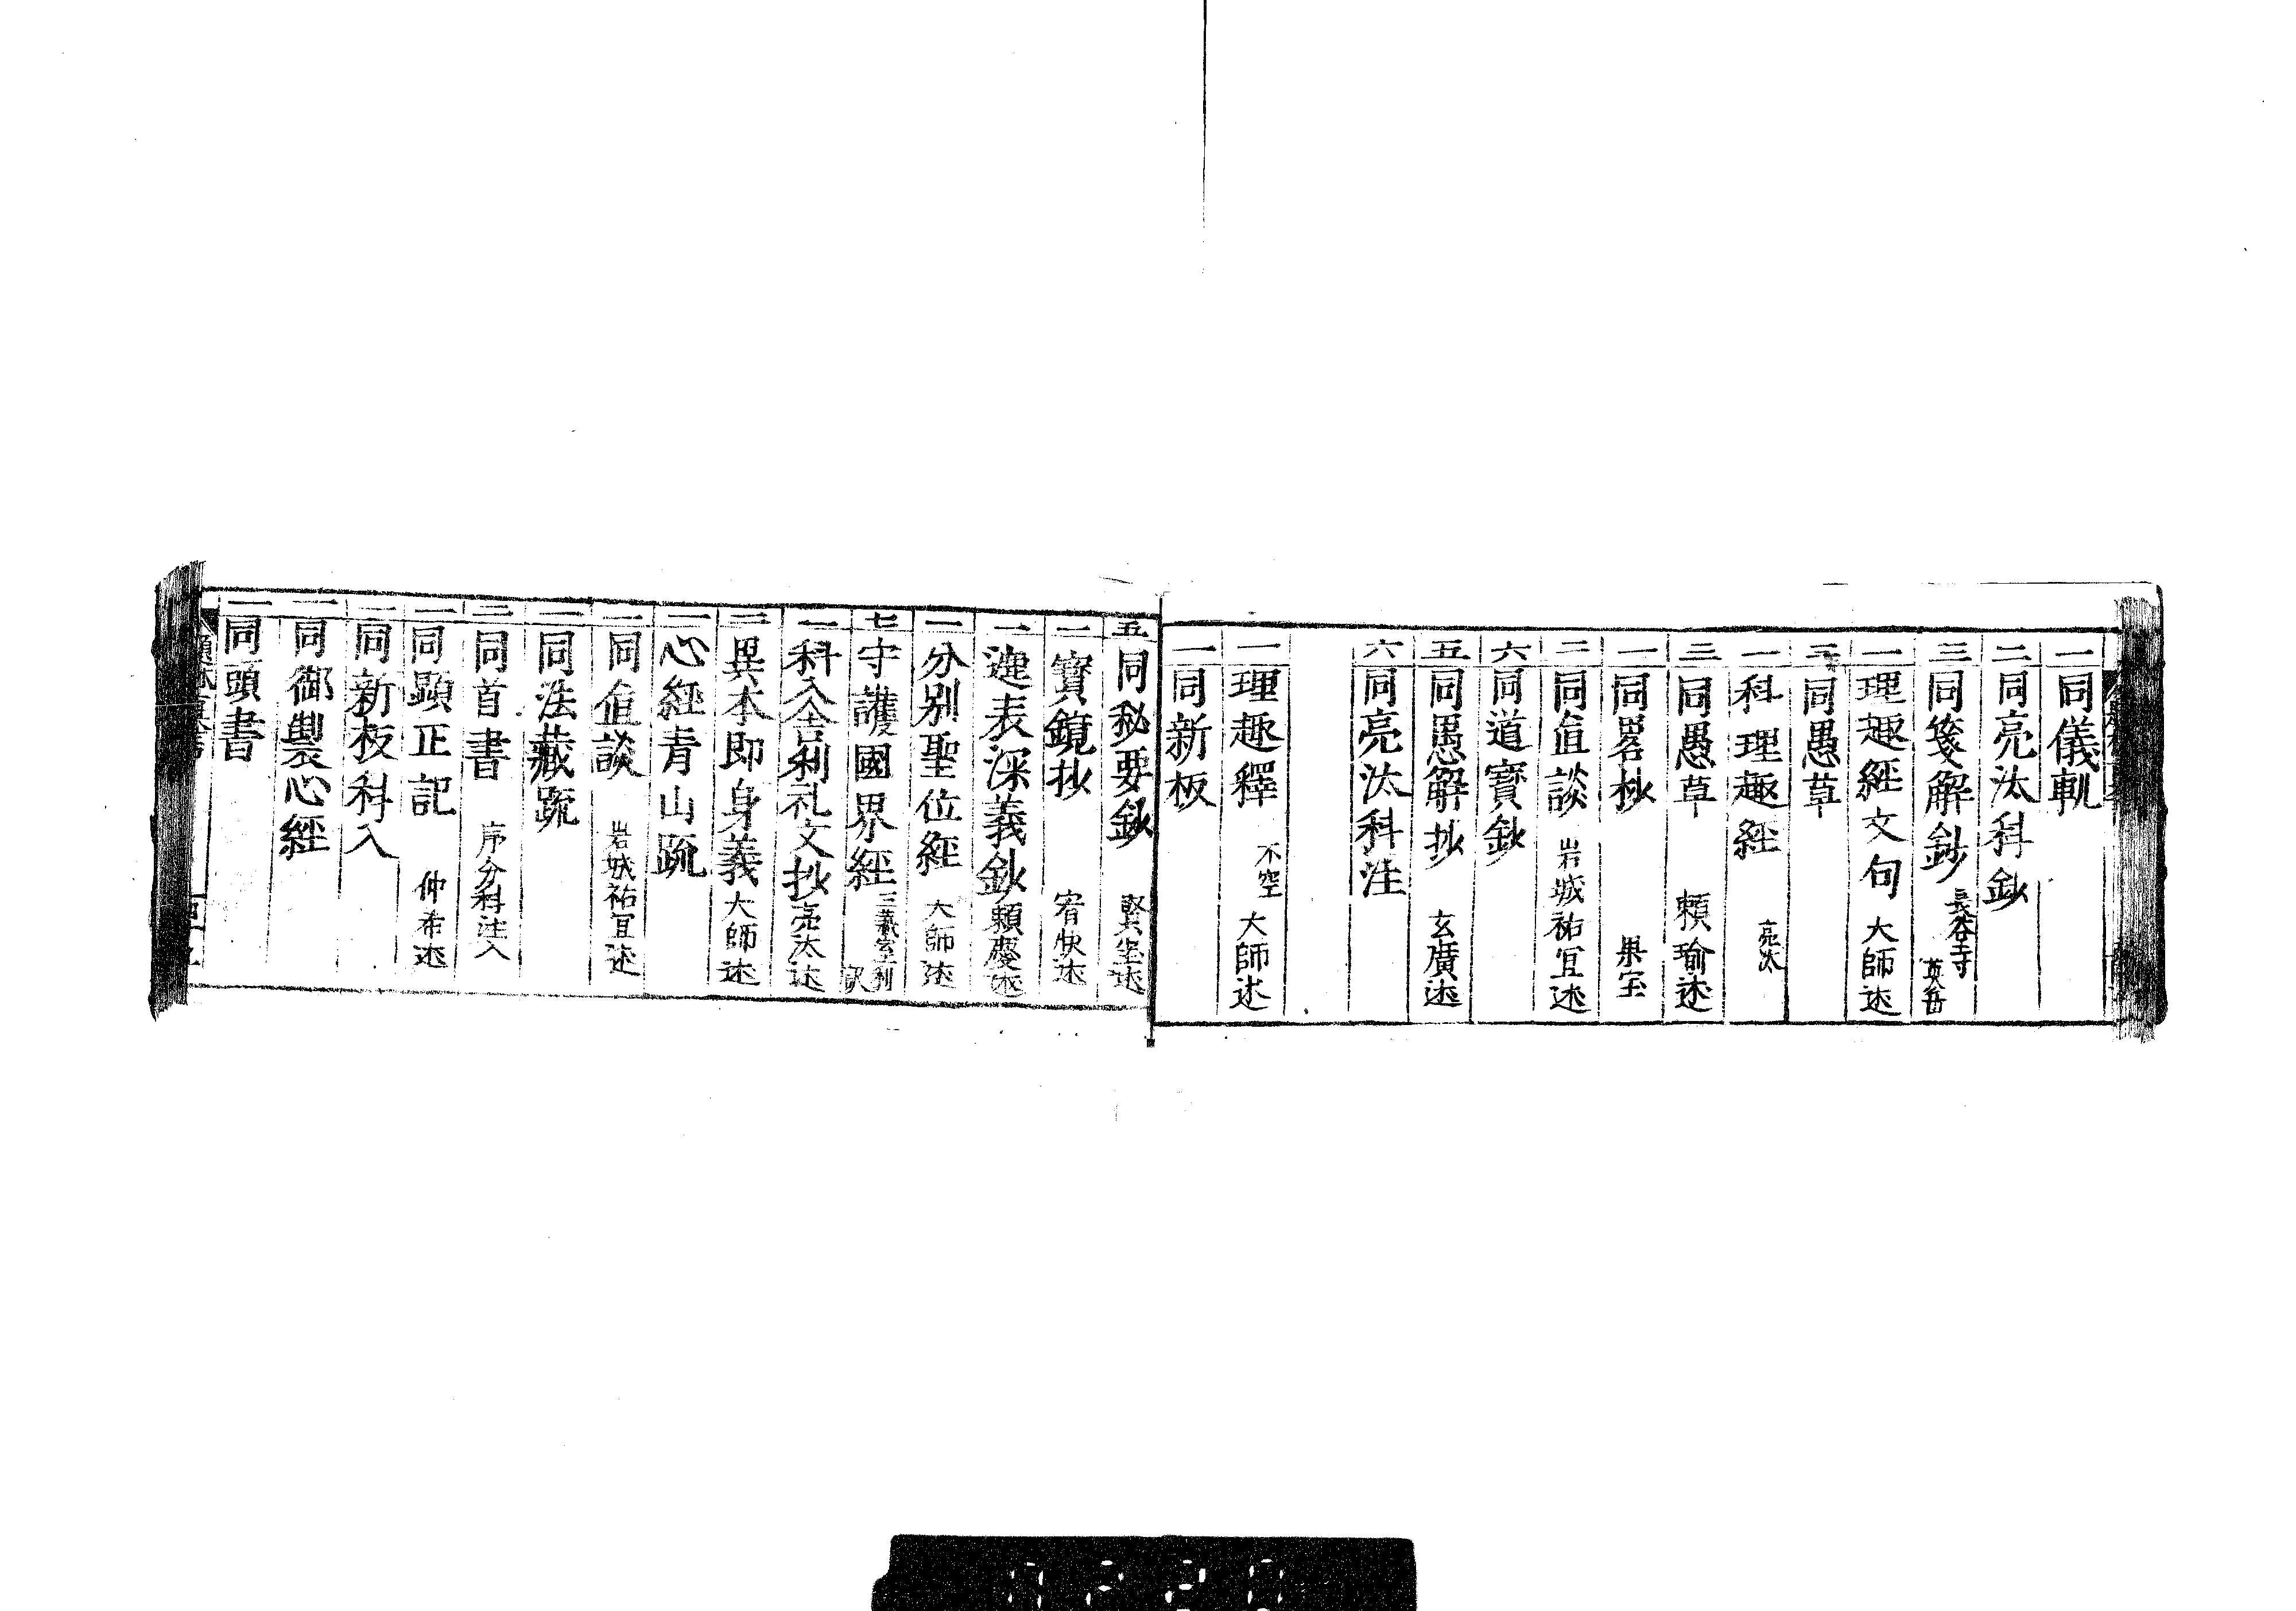 一 同儀軌
二 同亮汰科鈔
三 同箋解鈔 長谷寺 英岳
一 理趣經文句 大師述
二 同愚草
一 科理趣經 亮汰
三 同愚草 頼瑜述
一 同畧抄 果宝
二 同直談 岩城祐宜述
六 同道寳鈔
五 同愚解抄 玄廣述
六 同亮汰科注
一 理趣釋 不空 大師述
一 同新板
五 同秘要鈔 賢宝述
二 寳鏡抄 宥快述
二 遮表深義鈔 頼慶述
一 分别聖位經 大師述
七 守護國界經 訳
一 科入舎利礼文抄 亮汰述
一 異本即身義 大師述
一 心經青山疏
一 同直談 岩城祐宜述
一 同法藏疏
二 同首書 序分科注入
二 同顯正記 仲希述
一 同新板科入
一 同御製心經
一 同頭書